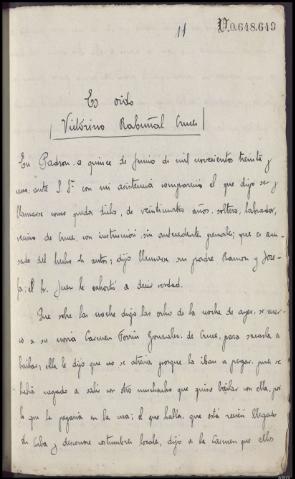 11
V.0.648.649
Es oído
Victorino Rabuñal Cruces
En Padrón a quince de Junio de mil novecientos treinta y
uno: ante S. Sª con mi asistencia compareció el que dijo ser y
llamarse como queda dicho, de veinticuatro años, soltero, labrador,
vecino de Cruces, con instrucción, sin antecedentes penales; que es acu-
sado del hecho de autos; dijo llamarse sus padres Ramon y Jose-
fa; el Sr. Juez le exhortó a decir verdad.
Que sobre las nueve digo las ocho de la noche de ayer, se acer-
có a su novia Carmen Ferrín Gonzalez, de Cruces, para sacarla a
bailar; ella le dijo que no se atrevía porque la iban a pegar, pues se
había negado a salir con otro muchacho que quiso bailar con ella, por
lo que le pegaría en la cara; el que habla, que está recién llegado
de Cuba y desconoce costumbres locales, dijo a la Carmen que ellos